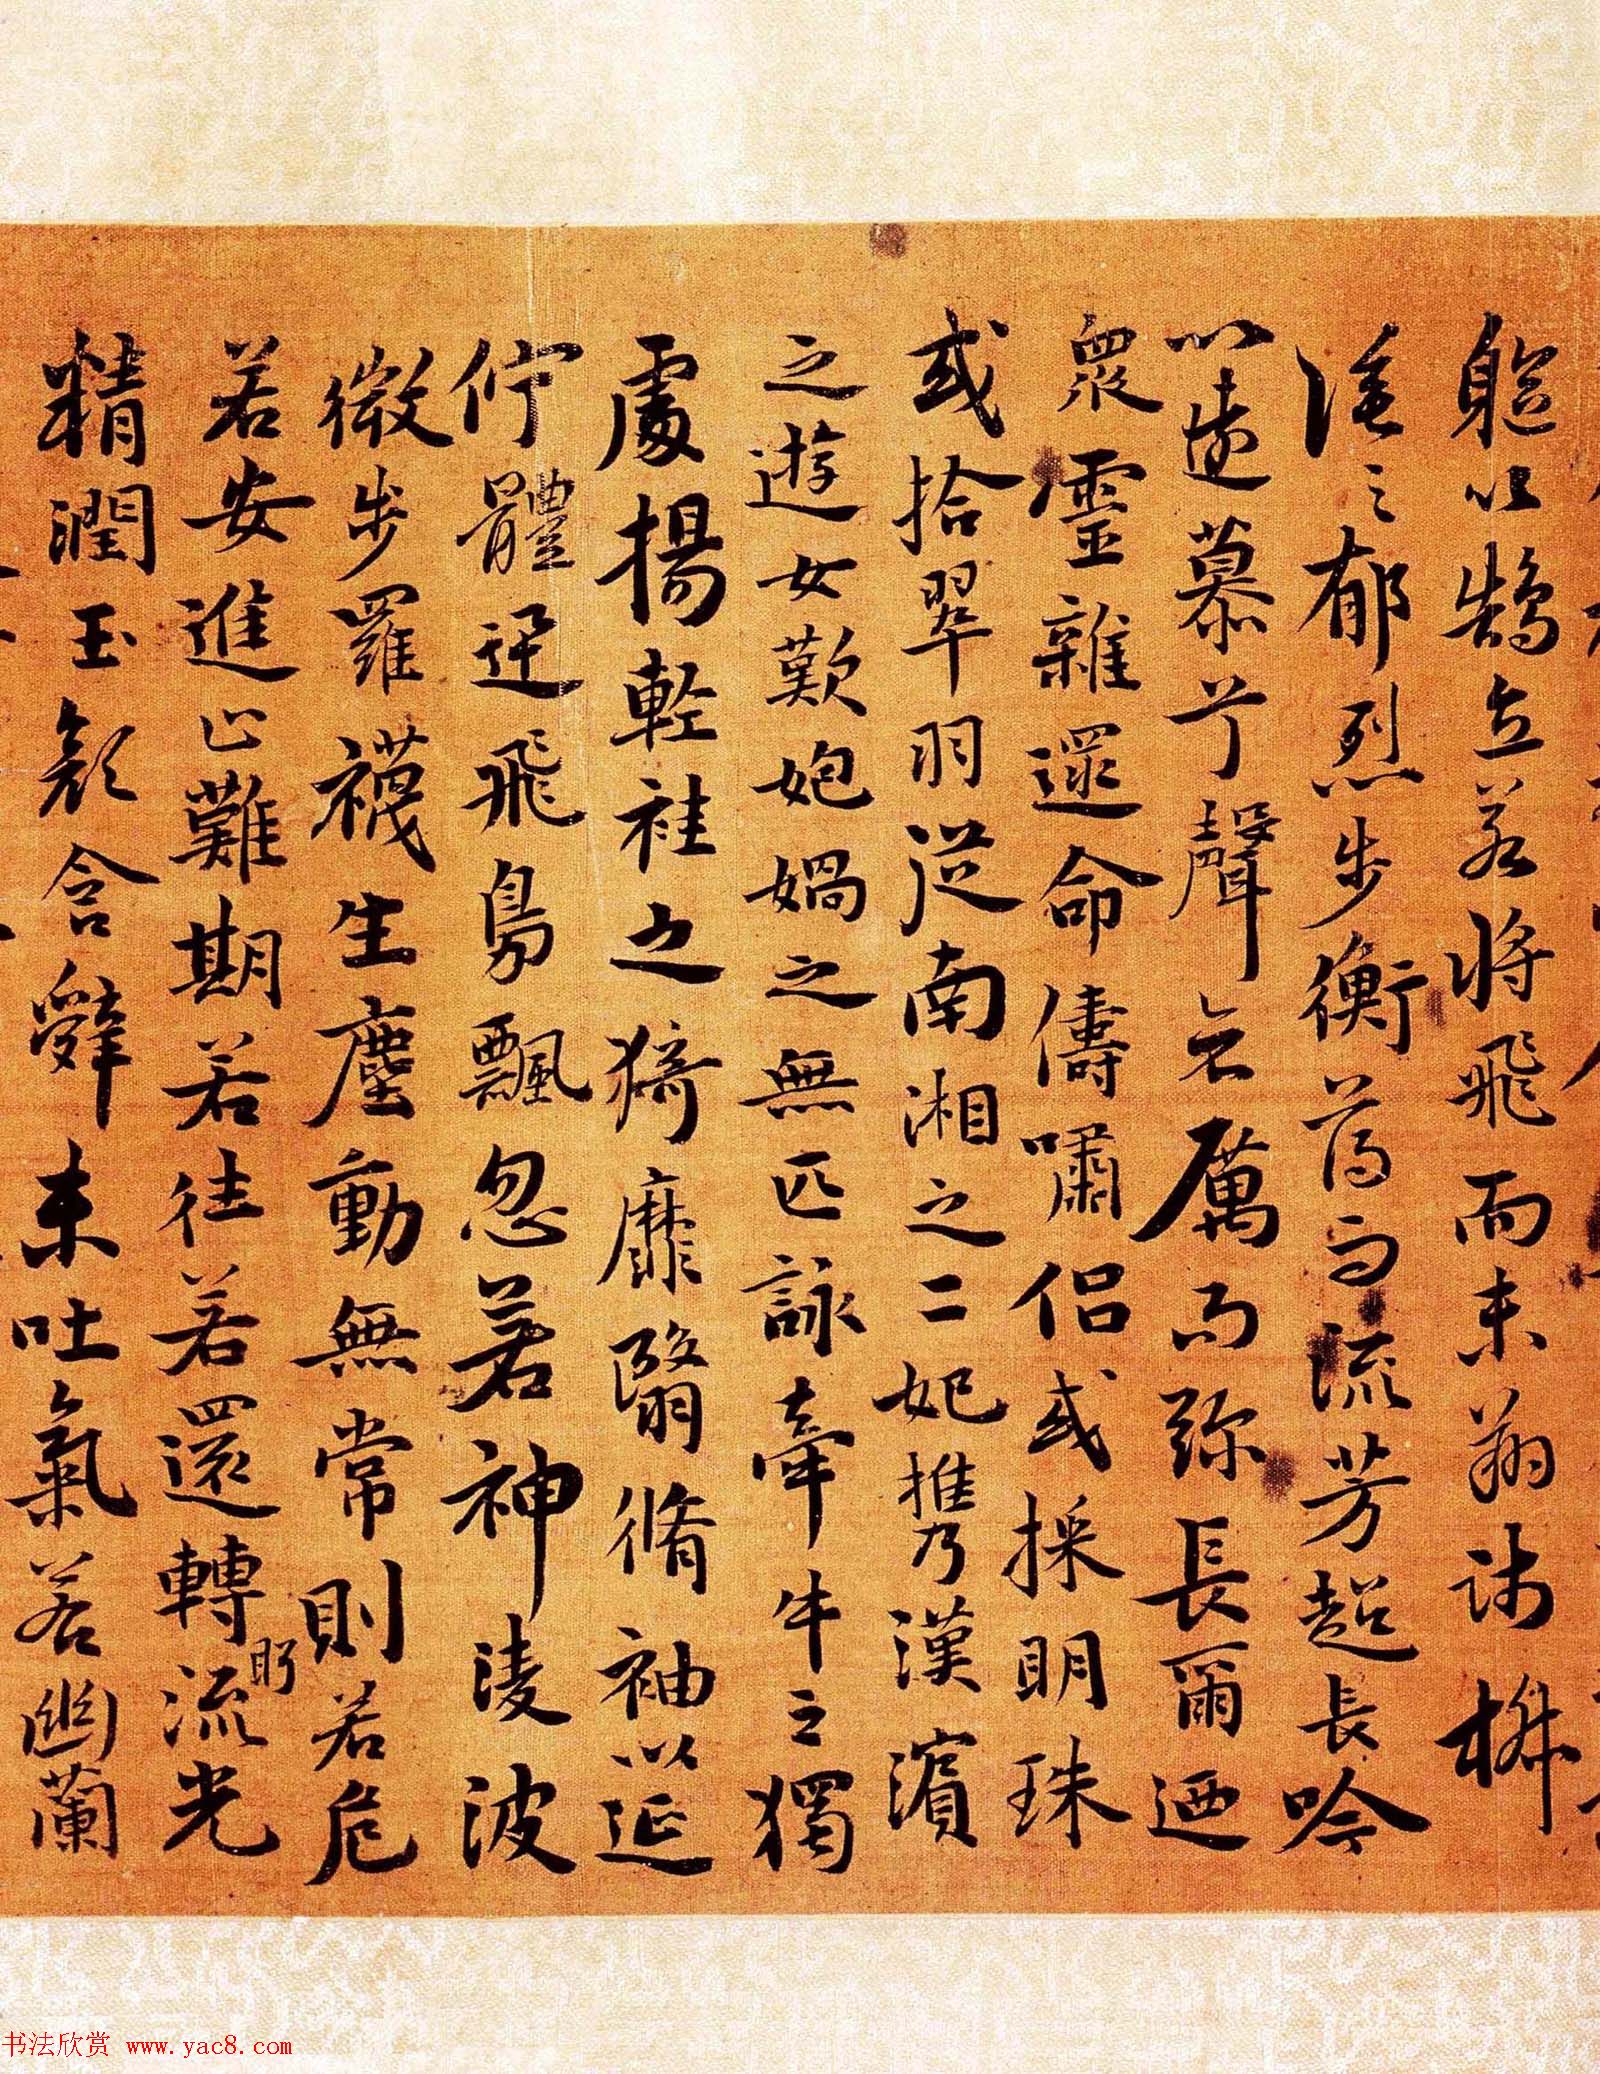 軀以鶴立若將飛而未翔踐椒
塗之郁烈步衡薄而流芳超長吟
以遠慕兮聲哀厲而彌長爾迺
衆靈雜遝命儔嘯侶或採明珠
或拾翠羽從南湘之二妃攜漢濱
之遊女歎匏媧之無匹詠牽牛之獨
處揚輕袿之猗靡翳脩袖以延
佇體迅飛鳧飄忽若神淩波
微步羅襪生塵動無常則若危
若安進止難期若往若還轉眄流光
精潤玉顏含辭未吐氣若幽蘭
书法欣赏 www.yac8.com